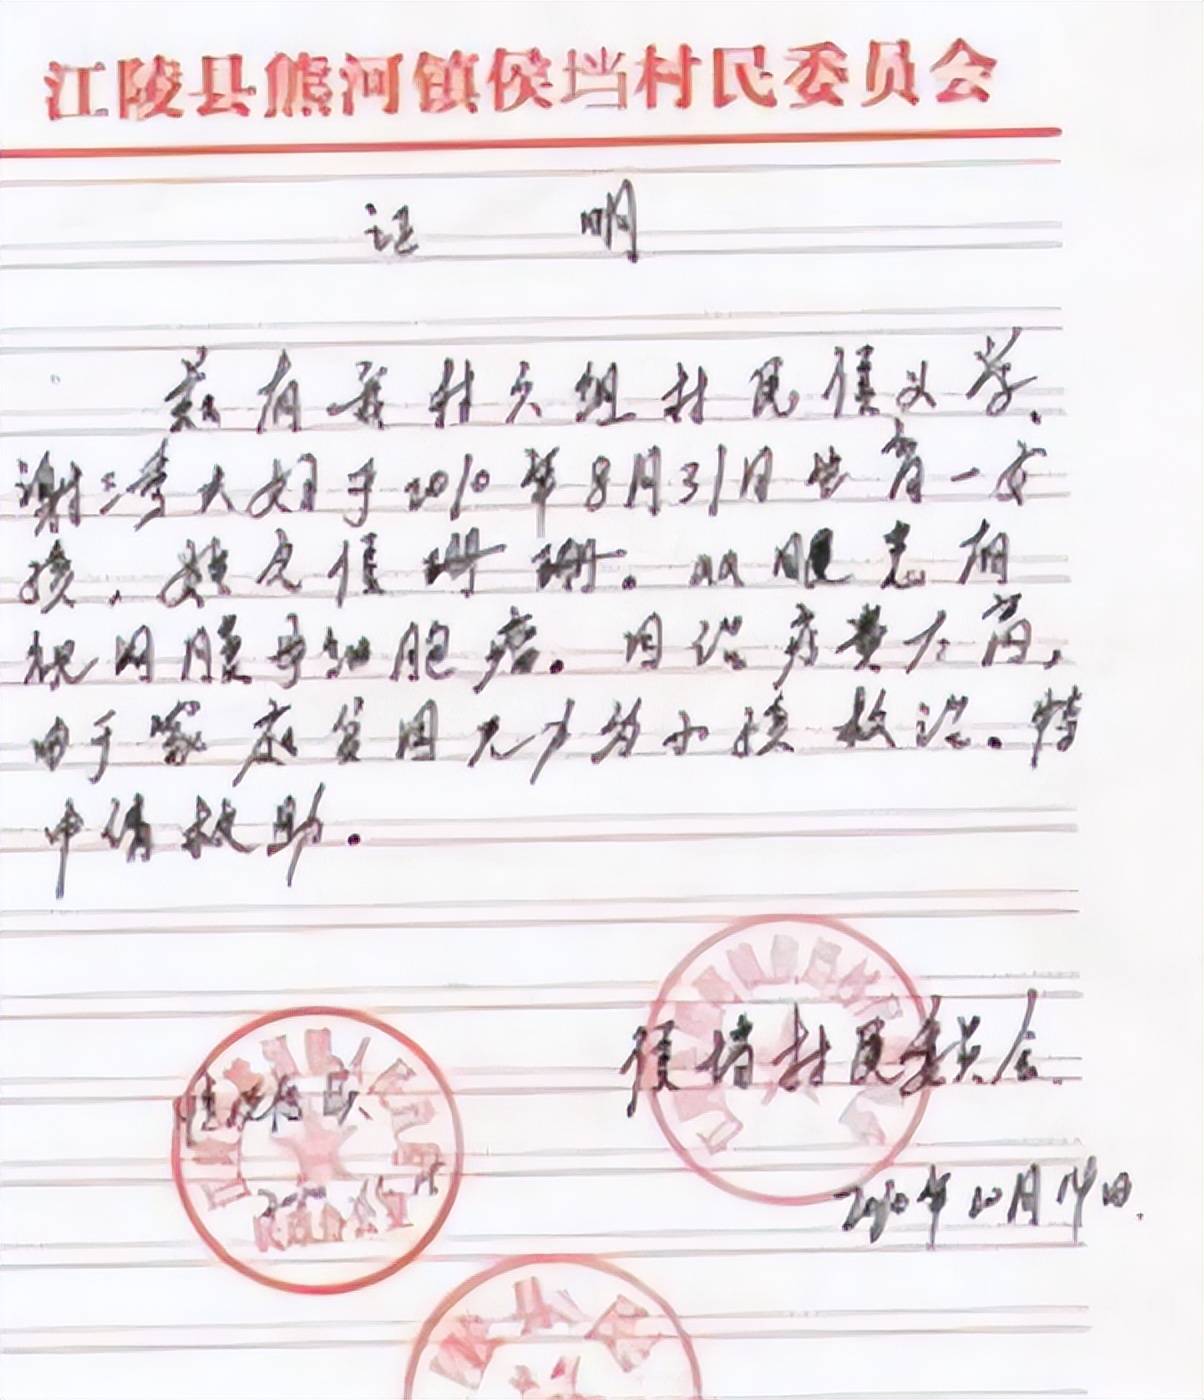 江陵县熊河镇侯垱村民委员会
证 明
兹有我村六组村民侯义学、
谢三湾夫妇于2010年8月31日生育一女
孩，姓名侯珊珊．双眼患有
视网膜母细胞瘤．因治疗费太高，
由于家庭贫困无力为小孩救治、特
申请救助．
侯垱村民委员会
2010年10月14日．